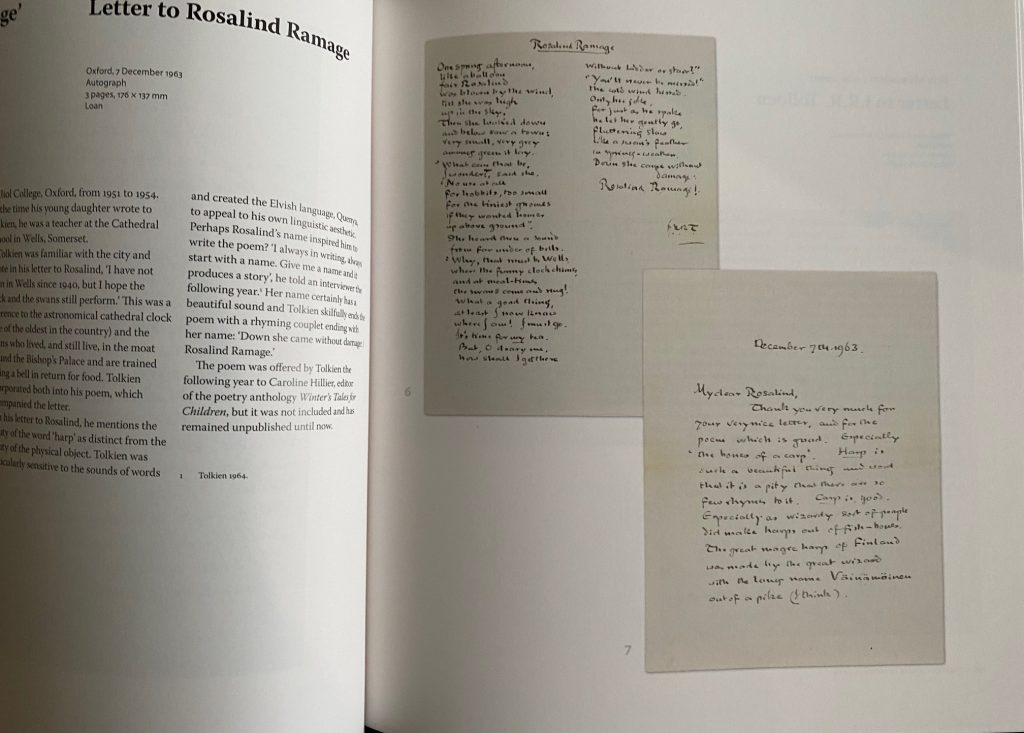 ge’
Letter to Rosalind Ramage
Oxford, 7 December 1963
Autograph
3 pages, 176 × 137 mm
Loan
liol College, Oxford, from 1951 to 1954.
the time his young daughter wrote to
kien, he was a teacher at the Cathedral
ool in Wells, Somerset.
Tolkien was familiar with the city and
te in his letter to Rosalind, ‘I have not
n in Wells since 1940, but I hope the
ck and the swans still perform.’ This was a
erence to the astronomical cathedral clock
e of the oldest in the country) and the
ns who lived, and still live, in the moat
und the Bishop’s Palace and are trained
ing a bell in return for food. Tolkien
rporated both into his poem, which
mpanied the letter.
his letter to Rosalind, he mentions the
ty of the word ‘harp’ as distinct from the
ty of the physical object. Tolkien was
icularly sensitive to the sounds of words
and created the Elvish language, Quenya,
to appeal to his own linguistic aesthetic.
Perhaps Rosalind’s name inspired him to
write the poem? ‘I always in writing, always
start with a name. Give me a name and it
produces a story’, he told an interviewer the
following year.¹ Her name certainly has a
beautiful sound and Tolkien skilfully ends the
poem with a rhyming couplet ending with
her name: ‘Down she came without damage /
Rosalind Ramage.’
The poem was offered by Tolkien the
following year to Caroline Hillier, editor
of the poetry anthology Winter’s Tales for
Children, but it was not included and has
remained unpublished until now.
1 Tolkien 1964.
Rosalind Ramage
One spring afternoon,
like a balloon
fair Rosalind
was blown by the wind,
till she was high
up in the sky.
Then she looked down
and below saw a town:
very small, very grey
among green it lay.
“What can that be,
I wonder?, said she.
“No use at all
for hobbits, too small
for the tiniest gnomes
if they wanted homes
up above ground”.
She heard then a sound
from far under of bells.
“Why, that must be Wells
where the funny clock chimes,
and at meal-times
the swans come and ring!
What a good thing,
at least I now know
where I am! I must go.
It's time for my tea.
But, O deary me,
how shall I get there
without ladder or stair?”
“You'll never be missed!”
the cold wind hissed.
Only his joke,
for just as he spoke
he let her gently go,
fluttering slow
like a swan's feather
in spring-weather.
Down she came without
damage:
Rosalind Ramage!
JRRT
6
December 7th. 1963.
My dear Rosalind,
Thank you very much for
your very nice letter, and for the
poem which is good. Especially
‘the bones of a carp’. Harp is
such a beautiful thing and word
that it is a pity that there are so
few rhymes to it. Carp is good.
Especially as wizardy sort of people
did make harps out of fish-bones.
The great magic harp of Finland
was made by the great wizard
with the long name Väinämöinen
out of a pike (I think).
7